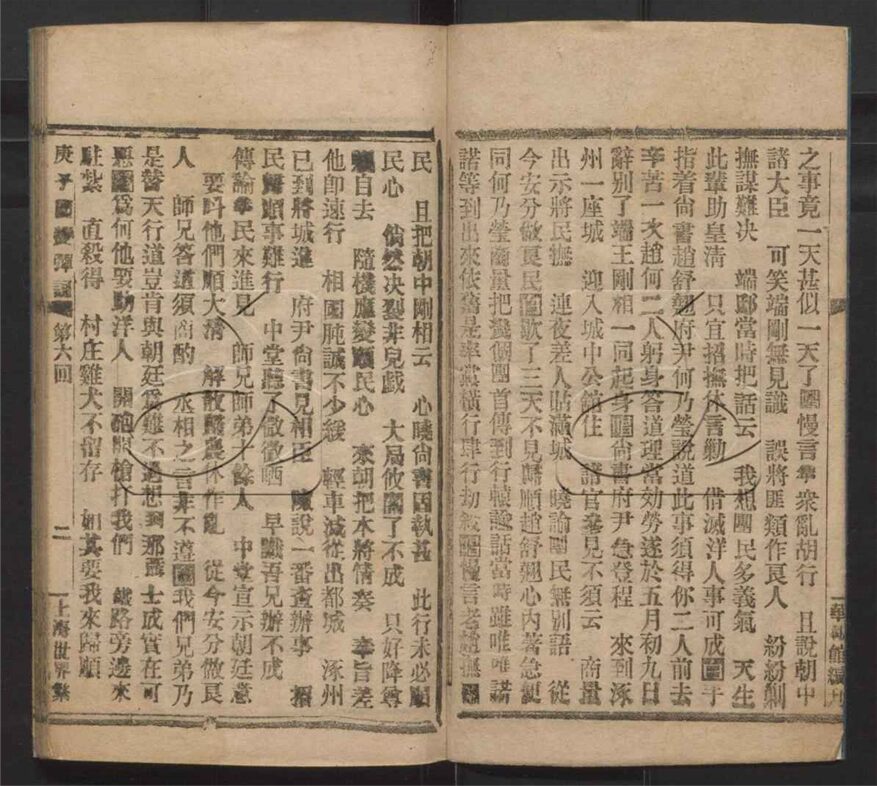 之事竟一天甚似一天了圖慢言拳衆亂胡行　且說朝中
諸大臣　可笑端剛無見識　誤將匪類作良人　紛紛剿
撫謀難決　端邸當時把話云　我想團民多義氣　天生
此輩助皇清　只宜招撫休言勦　借滅洋人事可成圖于
指着尚書趙舒翹府尹何乃瑩說道此事須得你二人前去
辛苦一次趙何二人躬身答道理當効勞遂於五月初九日
辭別了端王剛相一同起身圖尚書府尹急登程　來到涿
州一座城　迎入城中公館住　諸官參見不須云　商量
出示將民撫　連夜差人貼滿城　曉諭團民無別語　從
今安分做良民圖歇了三天不見歸順趙舒翹心內著急便
同何乃瑩商量把幾個團首傳到行轅談話當時雖唯唯諾
諾等到出來依舊是率黨橫行肆行劫殺圖慢言老趙撫
民　且把朝中剛相云　心曉尚書因執甚　此行未必順
民心　倘然决裂非兒戲　大局攸關了不成　只好降尊
親自去　隨機應變順民心　來朝把本將情奏　奉旨差
他卽速行　相國肫誠不少緩　輕車減從出都城　涿州
已到將城進　府尹尚書見相臣　陳說一番查辦事　招
民歸順事難行　中堂聽了微微哂　早識吾兄辦不成
傳諭拳民來進見　師兄師弟十餘人　中堂宣示朝廷意
要呌他們順大淸　解散團衆休作亂　從今安分做良
人　師兄答道須商酌　丞相之言非不遵圖我們兄弟乃
是替天行道豈肯與朝廷爲難不過想到那
惡圖爲何他要助洋人　開砲開槍打我們　鐵路旁邊來
駐紮　直殺得　村庄雞犬不留存　如其要我來歸順
庚子國變彈詞　第六回　二　上海世界繁華報館編刊